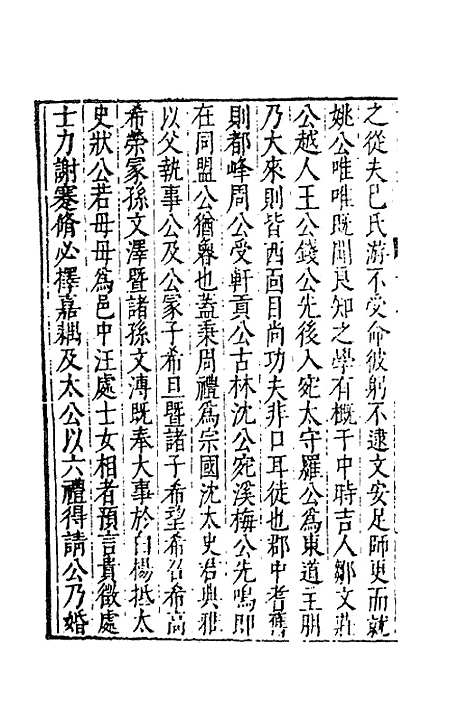 之從夫巴氏游不受命彼躬不逮文安足師更而就
姚公唯唯既聞良知之學有概于中時吉人鄒文莊
公越人王公錢公先後入宛太守羅公為東道主朋
乃大來則皆西面目尚功夫非口耳徒也郡中耆舊
則都峰周公受軒貢公古林沈公宛溪梅公先鳴即
在同盟公猶魯也蓋秉周禮為宗國沈太史君典雅
以父執事公及公冢子希旦暨諸子希望希召希高
希榮冢孫文澤暨諸孫文溥既奉大事於白楊抵太
史狀公若母母為邑中汪處士女相者預言貴徵處
士力謝蹇脩必擇嘉耦及太公以六禮得請公乃婚